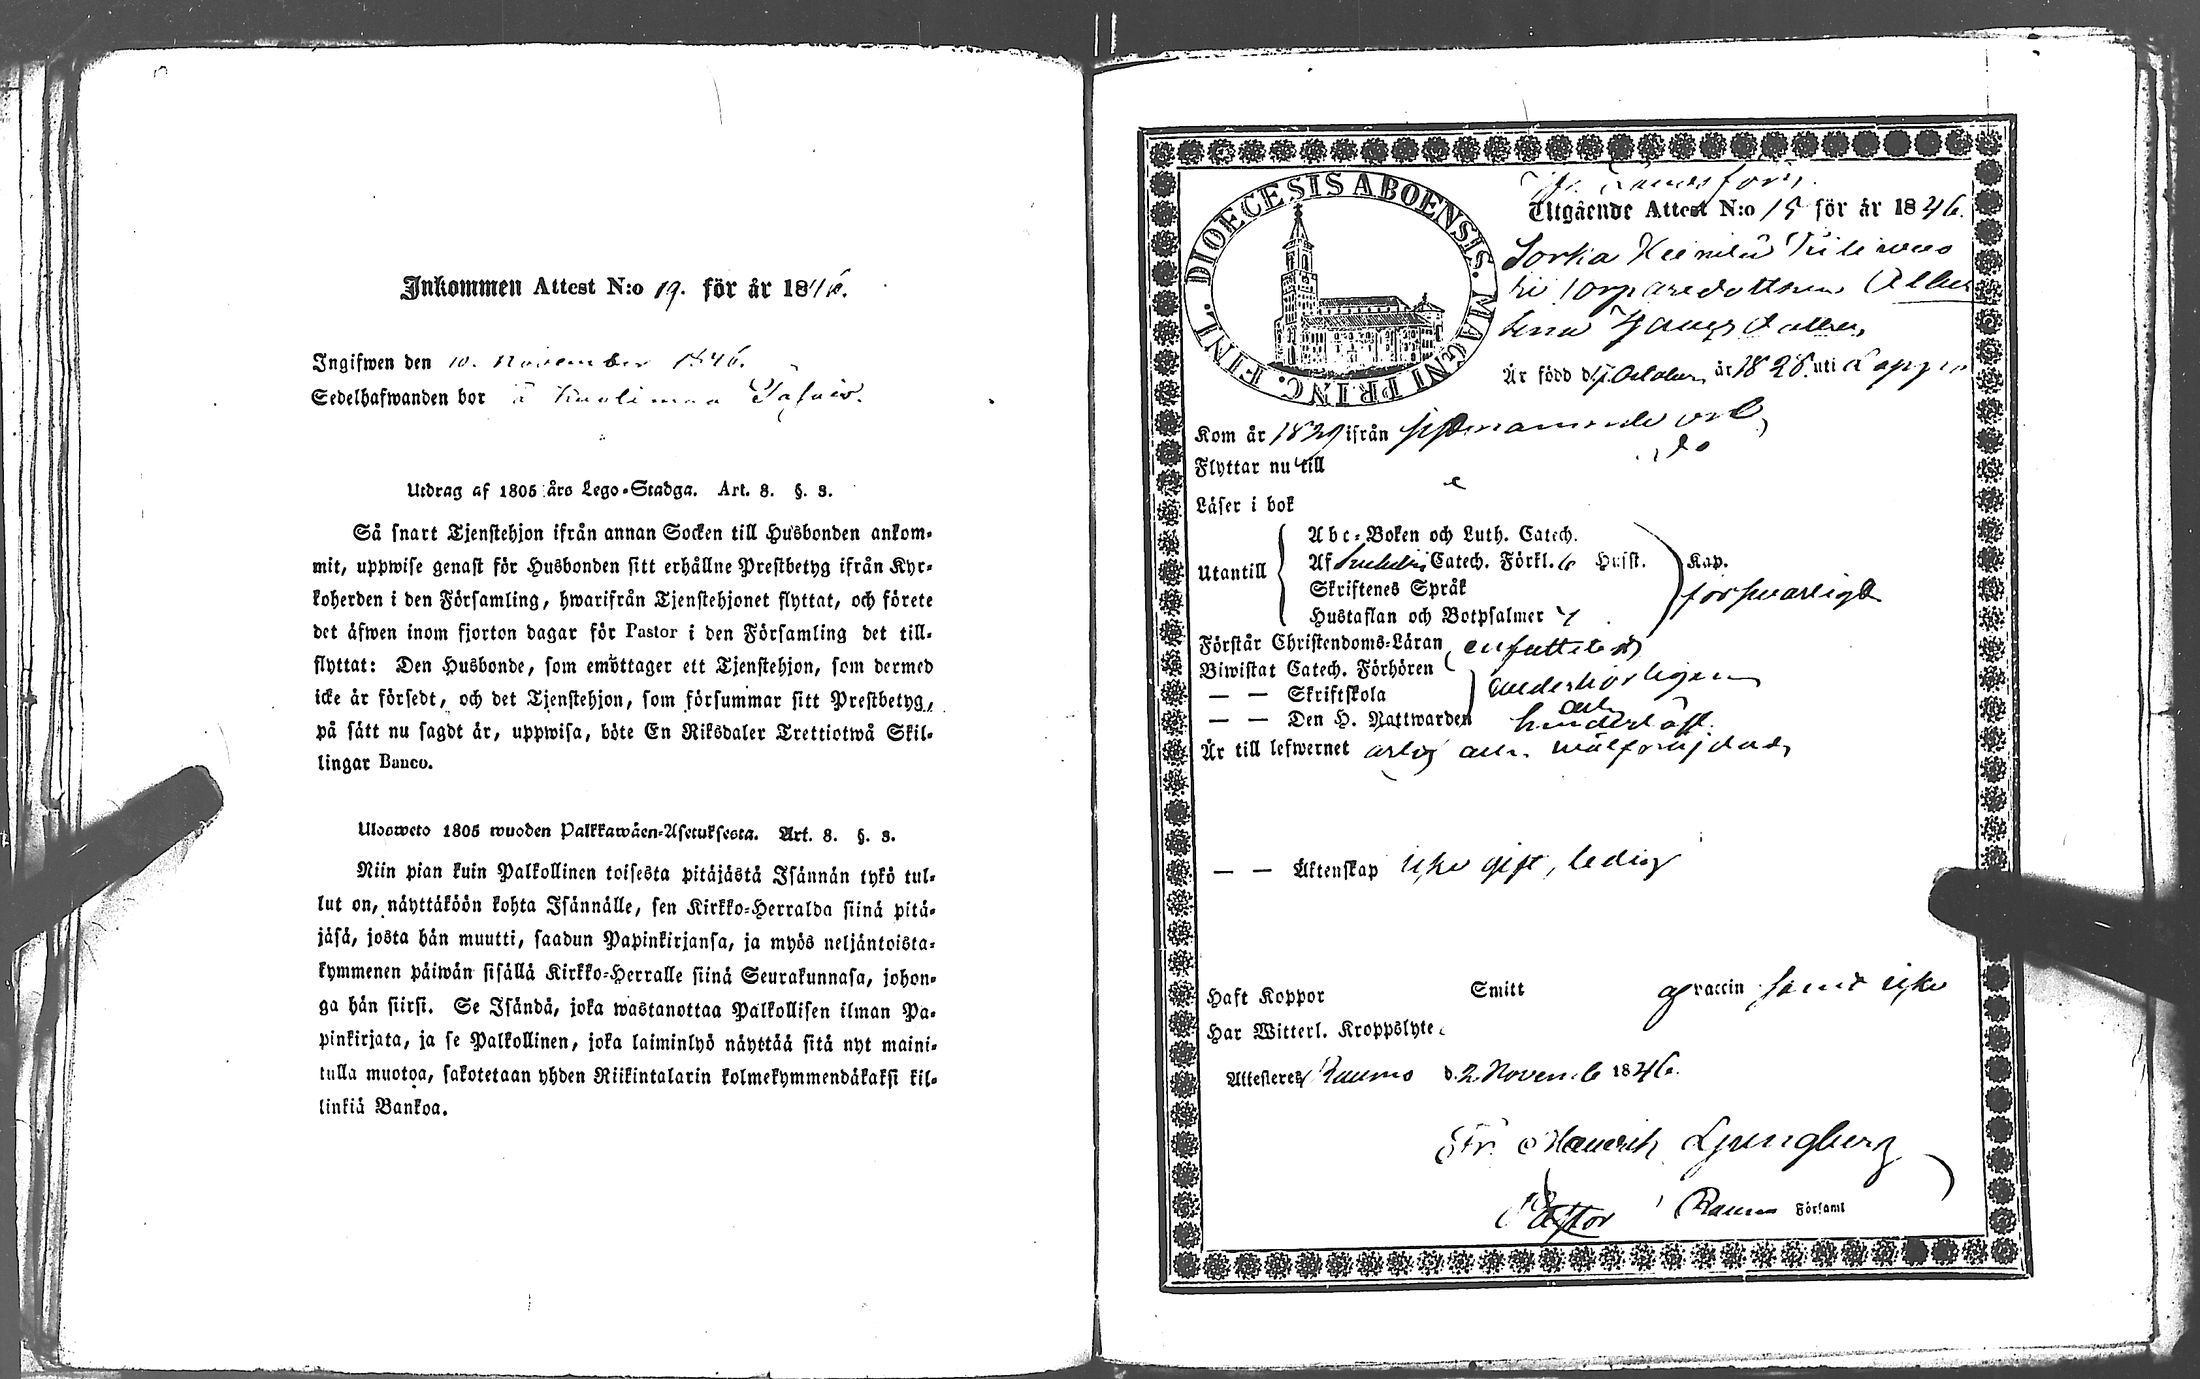 Inkommen Attest N:o 19. för år 1846.
Ingifwen den 10. November 1846.
Sedelhafwanden bor å
Utdrag af 1805 års Lego-Stadga. Art. 8. §. 3.
Så snart Tjenstehjon ifrån annan Socken till Husbonden ankom-
mit, uppwise genast för Husbonden sitt erhållne Prestbetyg ifrån Kyr-
koherden i den Församling, hwarifrån Tjenstehjonet flyttat, och förete
det äfwen inom fjorton dagar för Pastor i den Församling det till-
flyttat: Den Husbonde, som emottager ett Tjenstehjon, som dermed
icke är försedt, och det Tjenstehjon, som försummar sitt Prestbetyg,
på sätt nu sagdt är, uppwisa, böte En Riksdaler Trettiotwå Skil-
lingar Banco.
Ulosweto 1805 wuoden Palkkawäen-Asetuksesta. Art. 8. §. 3.
Niin pian kuin Palkollinen toisesta pitäjästä Isännän tykö tul-
lut on, näyttäköön kohta Isännälle, sen Kirkko-Herralda siinä pitä-
jäsä, josta hän muutti, saadun Papinkirjansa, ja myös neljäntoista-
kymmenen päiwän sisällä Kirkko-Herralle siinä Seurakunnasa, johon-
ga hän siirsi. Se Isändä, joka wastanottaa Palkollisen ilman Pa-
pinkirjata, ja se Palkollinen, joka laiminlyö näyttää sitä nyt maini-
tulla muotoa, sakotetaan yhden Riikintalarin kolmekymmendäkaksi kil-
linkiä Bankoa.
DIOECESIS ABOENSIS. MAGNI PRINC. FINL.
Utgående Attest N:o 15 för år 1846.
Torparedottren
Är född d. October år 1828. uti
Kom år 1829 ifrån
Flyttar nu till
Läser i bok
Utantill
Abc-Boken och Luth. Catech.
Af Catech. Förkl. 6 Hufst. Kap.
Skriftenes Språk
Hustaflan och Botpsalmer
försvarligt
Förstår Christendoms-Läran
Biwistat Catech. Förhören
— — Skriftskola
— — Den H. Nattwarden
Är till lefwernet ärlig och
— — Äktenskap icke gift, ledig
Haft Koppor Smitt vaccin samt icke
Har Witterl. Kroppslyte
Attesteres Raumo d. 2 Novemb 1846.
Ljungberg
Pastor i Raumo Församl